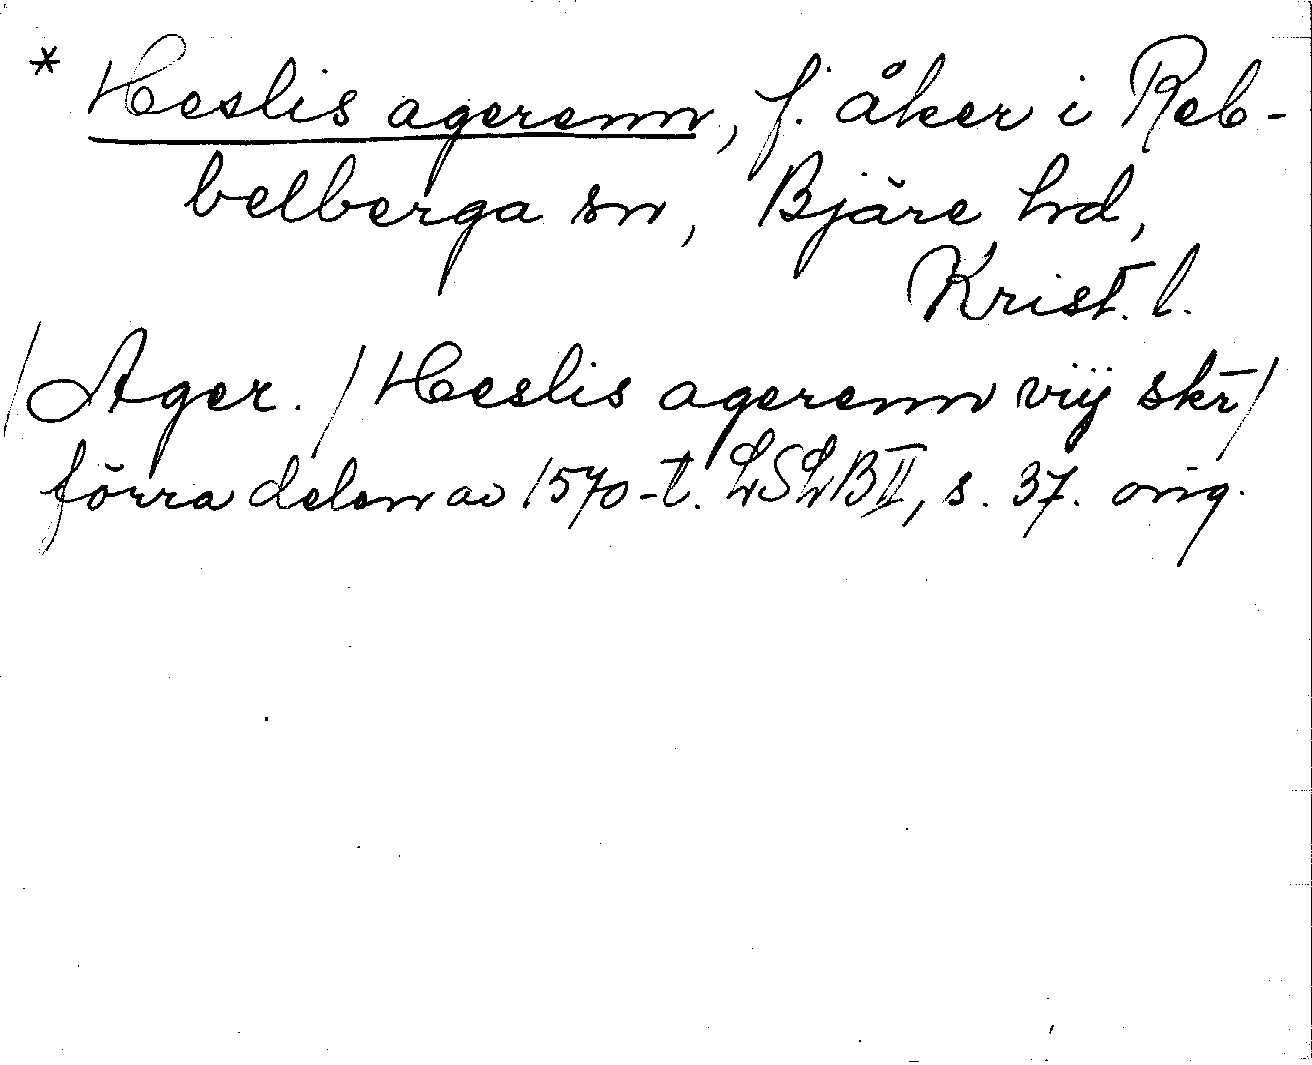 * Heslis agerenn, f. åker i Reb-
belberga sn, Bjäre hd,
Krist. l.
/Ager./Heslis agerenn vij skr/
förra delen av 1570-t. LSLB II, s. 37. orig.